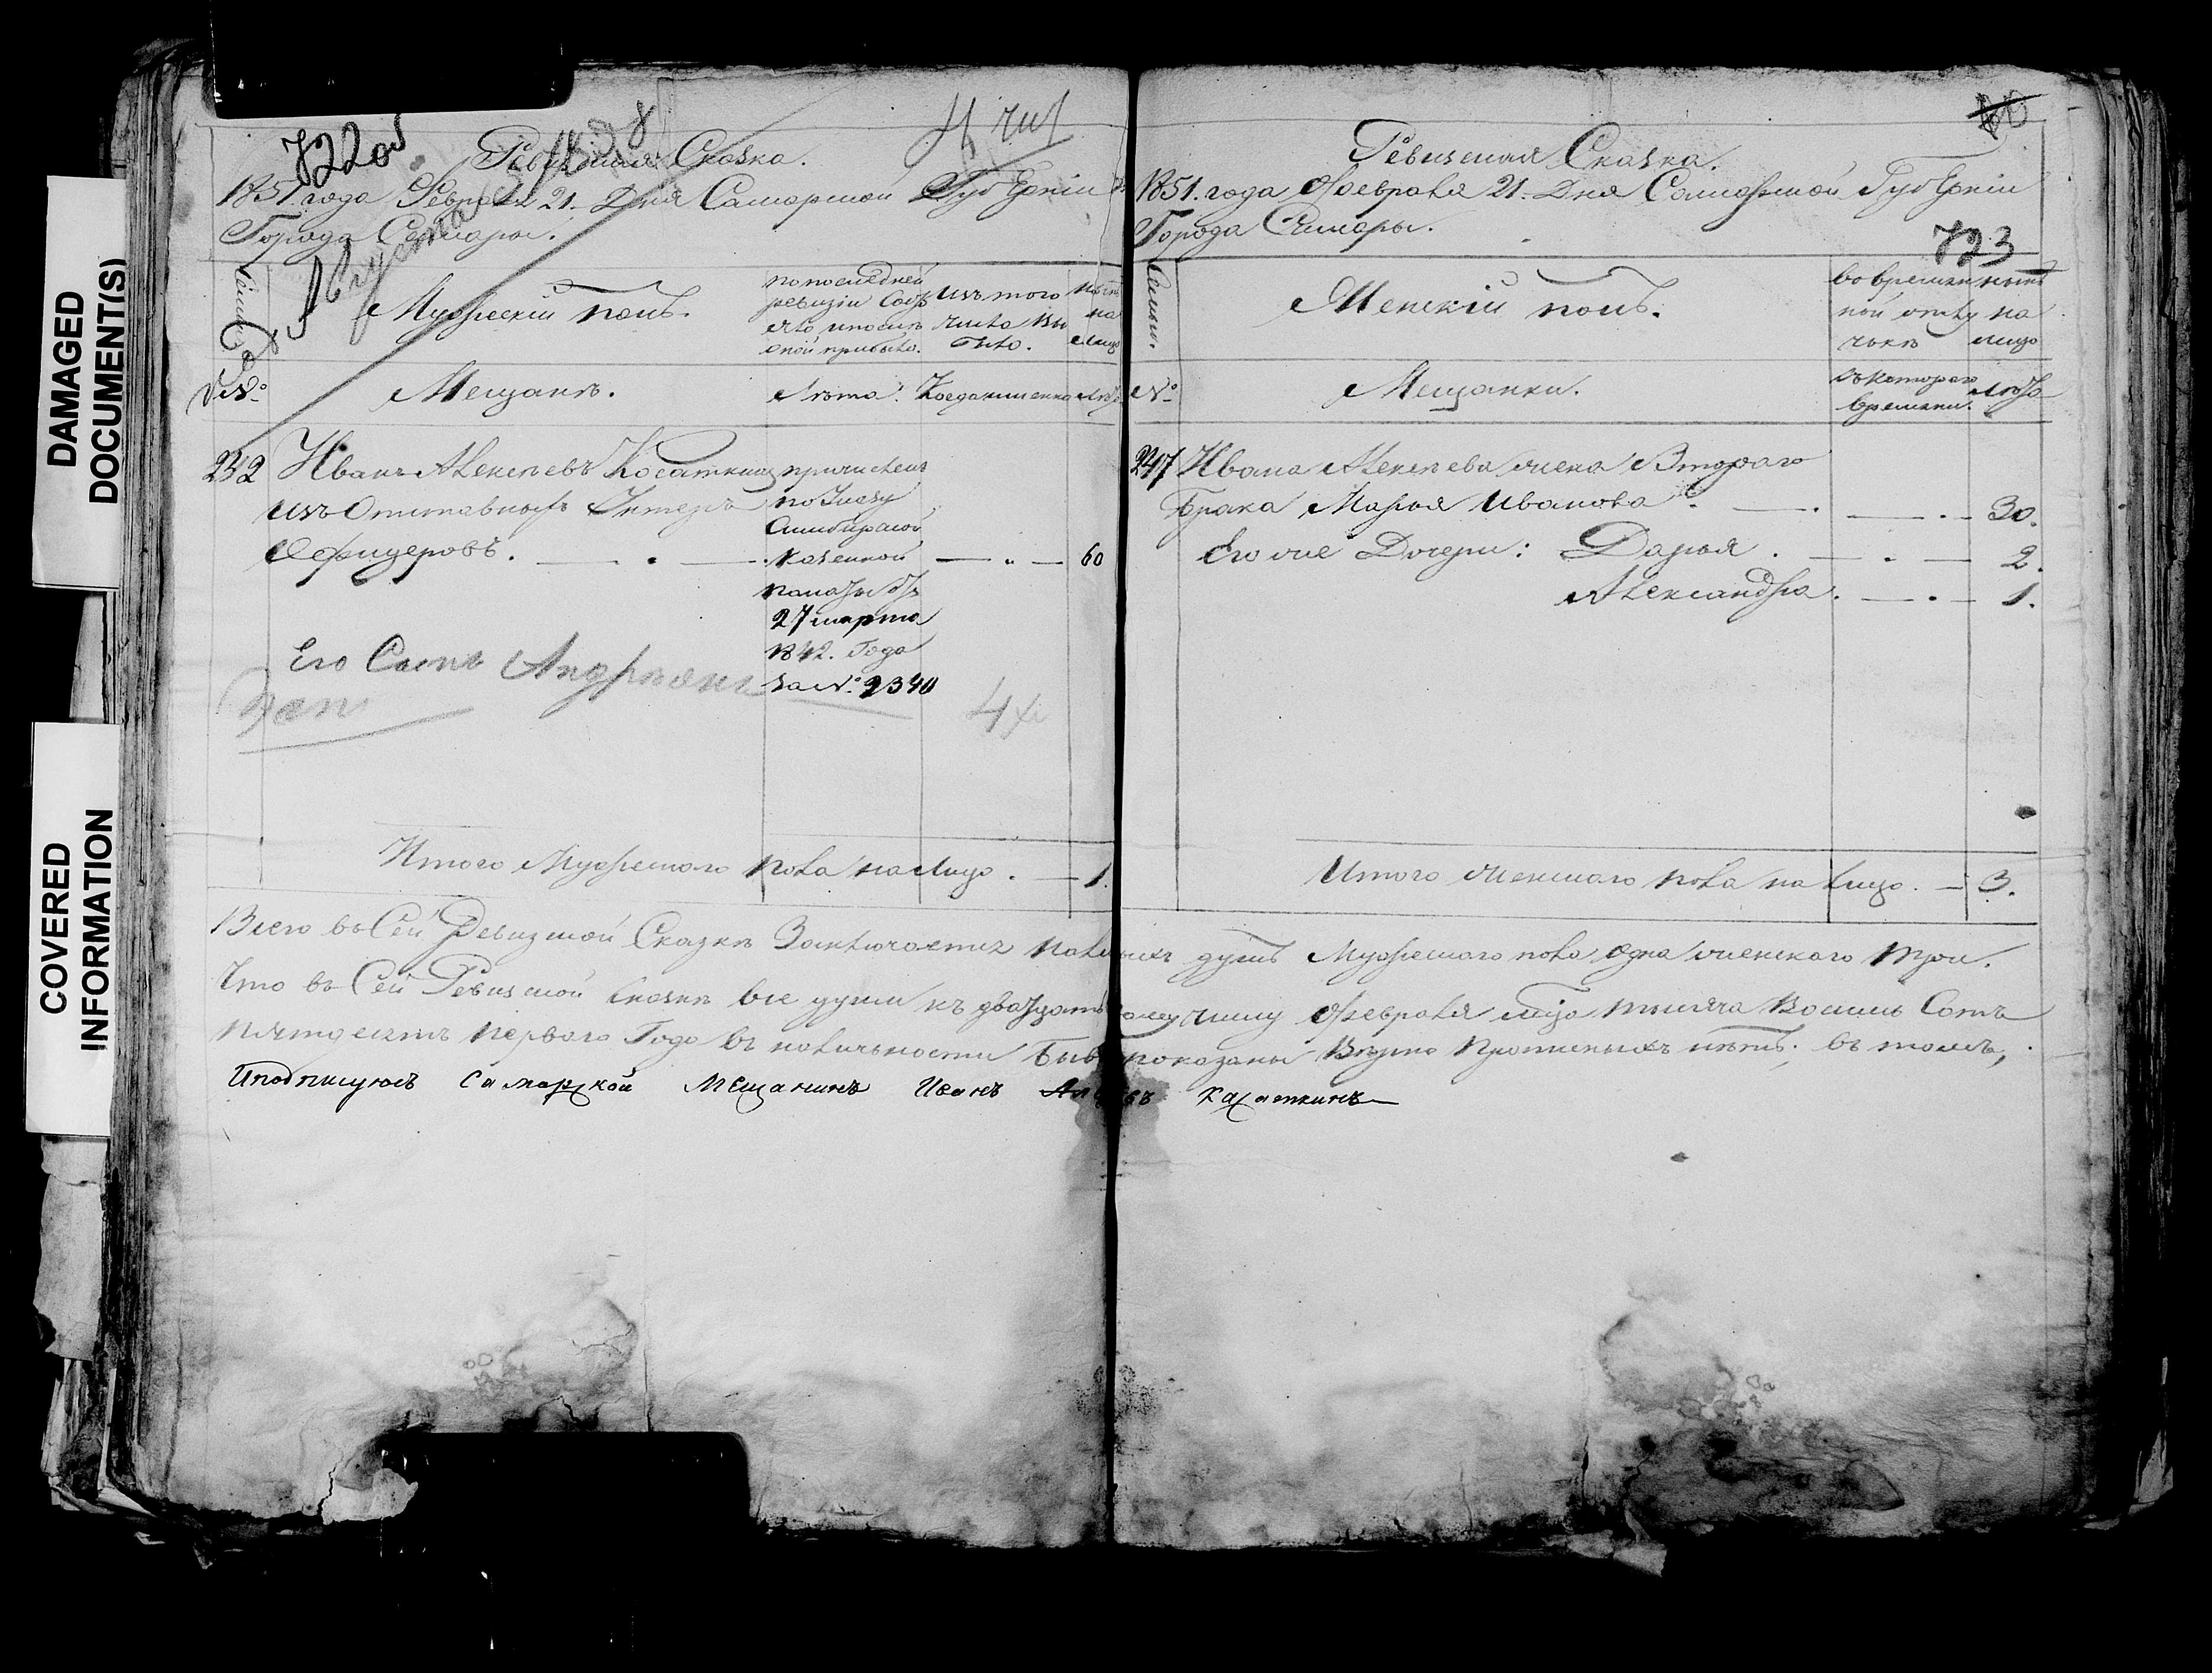 DAMAGED
DOCUMENT(S)
COVERED
INFORMATION
722об
Ревизская Сказка.
1851 года Февраля 21. Дня Самарской Губерніи
Города Самары.
Мужескій полъ.
по последней
ревизіи состо
яло и после
оной прибыло.
изъ того
числа вы
было.
ныне
на
лицо
№
Мещане.
Лѣта.
Когда именно
Лѣта
242
Иванъ Алексѣевъ Косаткинъ
изъ Отставныхъ Унтеръ
Офицеровъ.
причисленъ
по Указу
Симбирской
Казенной
палаты отъ
27 марта
1842. Года
за №. 2340
60
Его Сынъ Андреянъ
Итого Мужескаго пола на лицо. 1.
Ревизская Сказка.
1851. года Февраля 21. Дня Самарской Губерніи
Города Самары.
723
Семьи.
Женскій полъ.
во времян
ной отлу
чкѣ
нынѣ
на
лицо
№
Мещанки.
съ котораго
времяни.
Лѣта
247
Ивана Алексѣева жена Втораго
Брака Марья Иванова. 30.
Его же Дочери: Дарья. 2.
Александра. 1.
Итого женскаго пола на лицо. 3.
Всего въ Сей Ревизской Сказкѣ Заключается наличныхъ душъ Мужескаго пола одна женскаго три.
Что въ Сей Ревизской Сказкѣ все души къ двадцать числу Февраля мца тысяча Восемь Сотъ
пятдесятъ перваго Года въ наличности показаны Прописныхъ нѣтъ; въ томъ,
И подписуюсь Самарской Мещанинъ Иванъ Касаткинъ